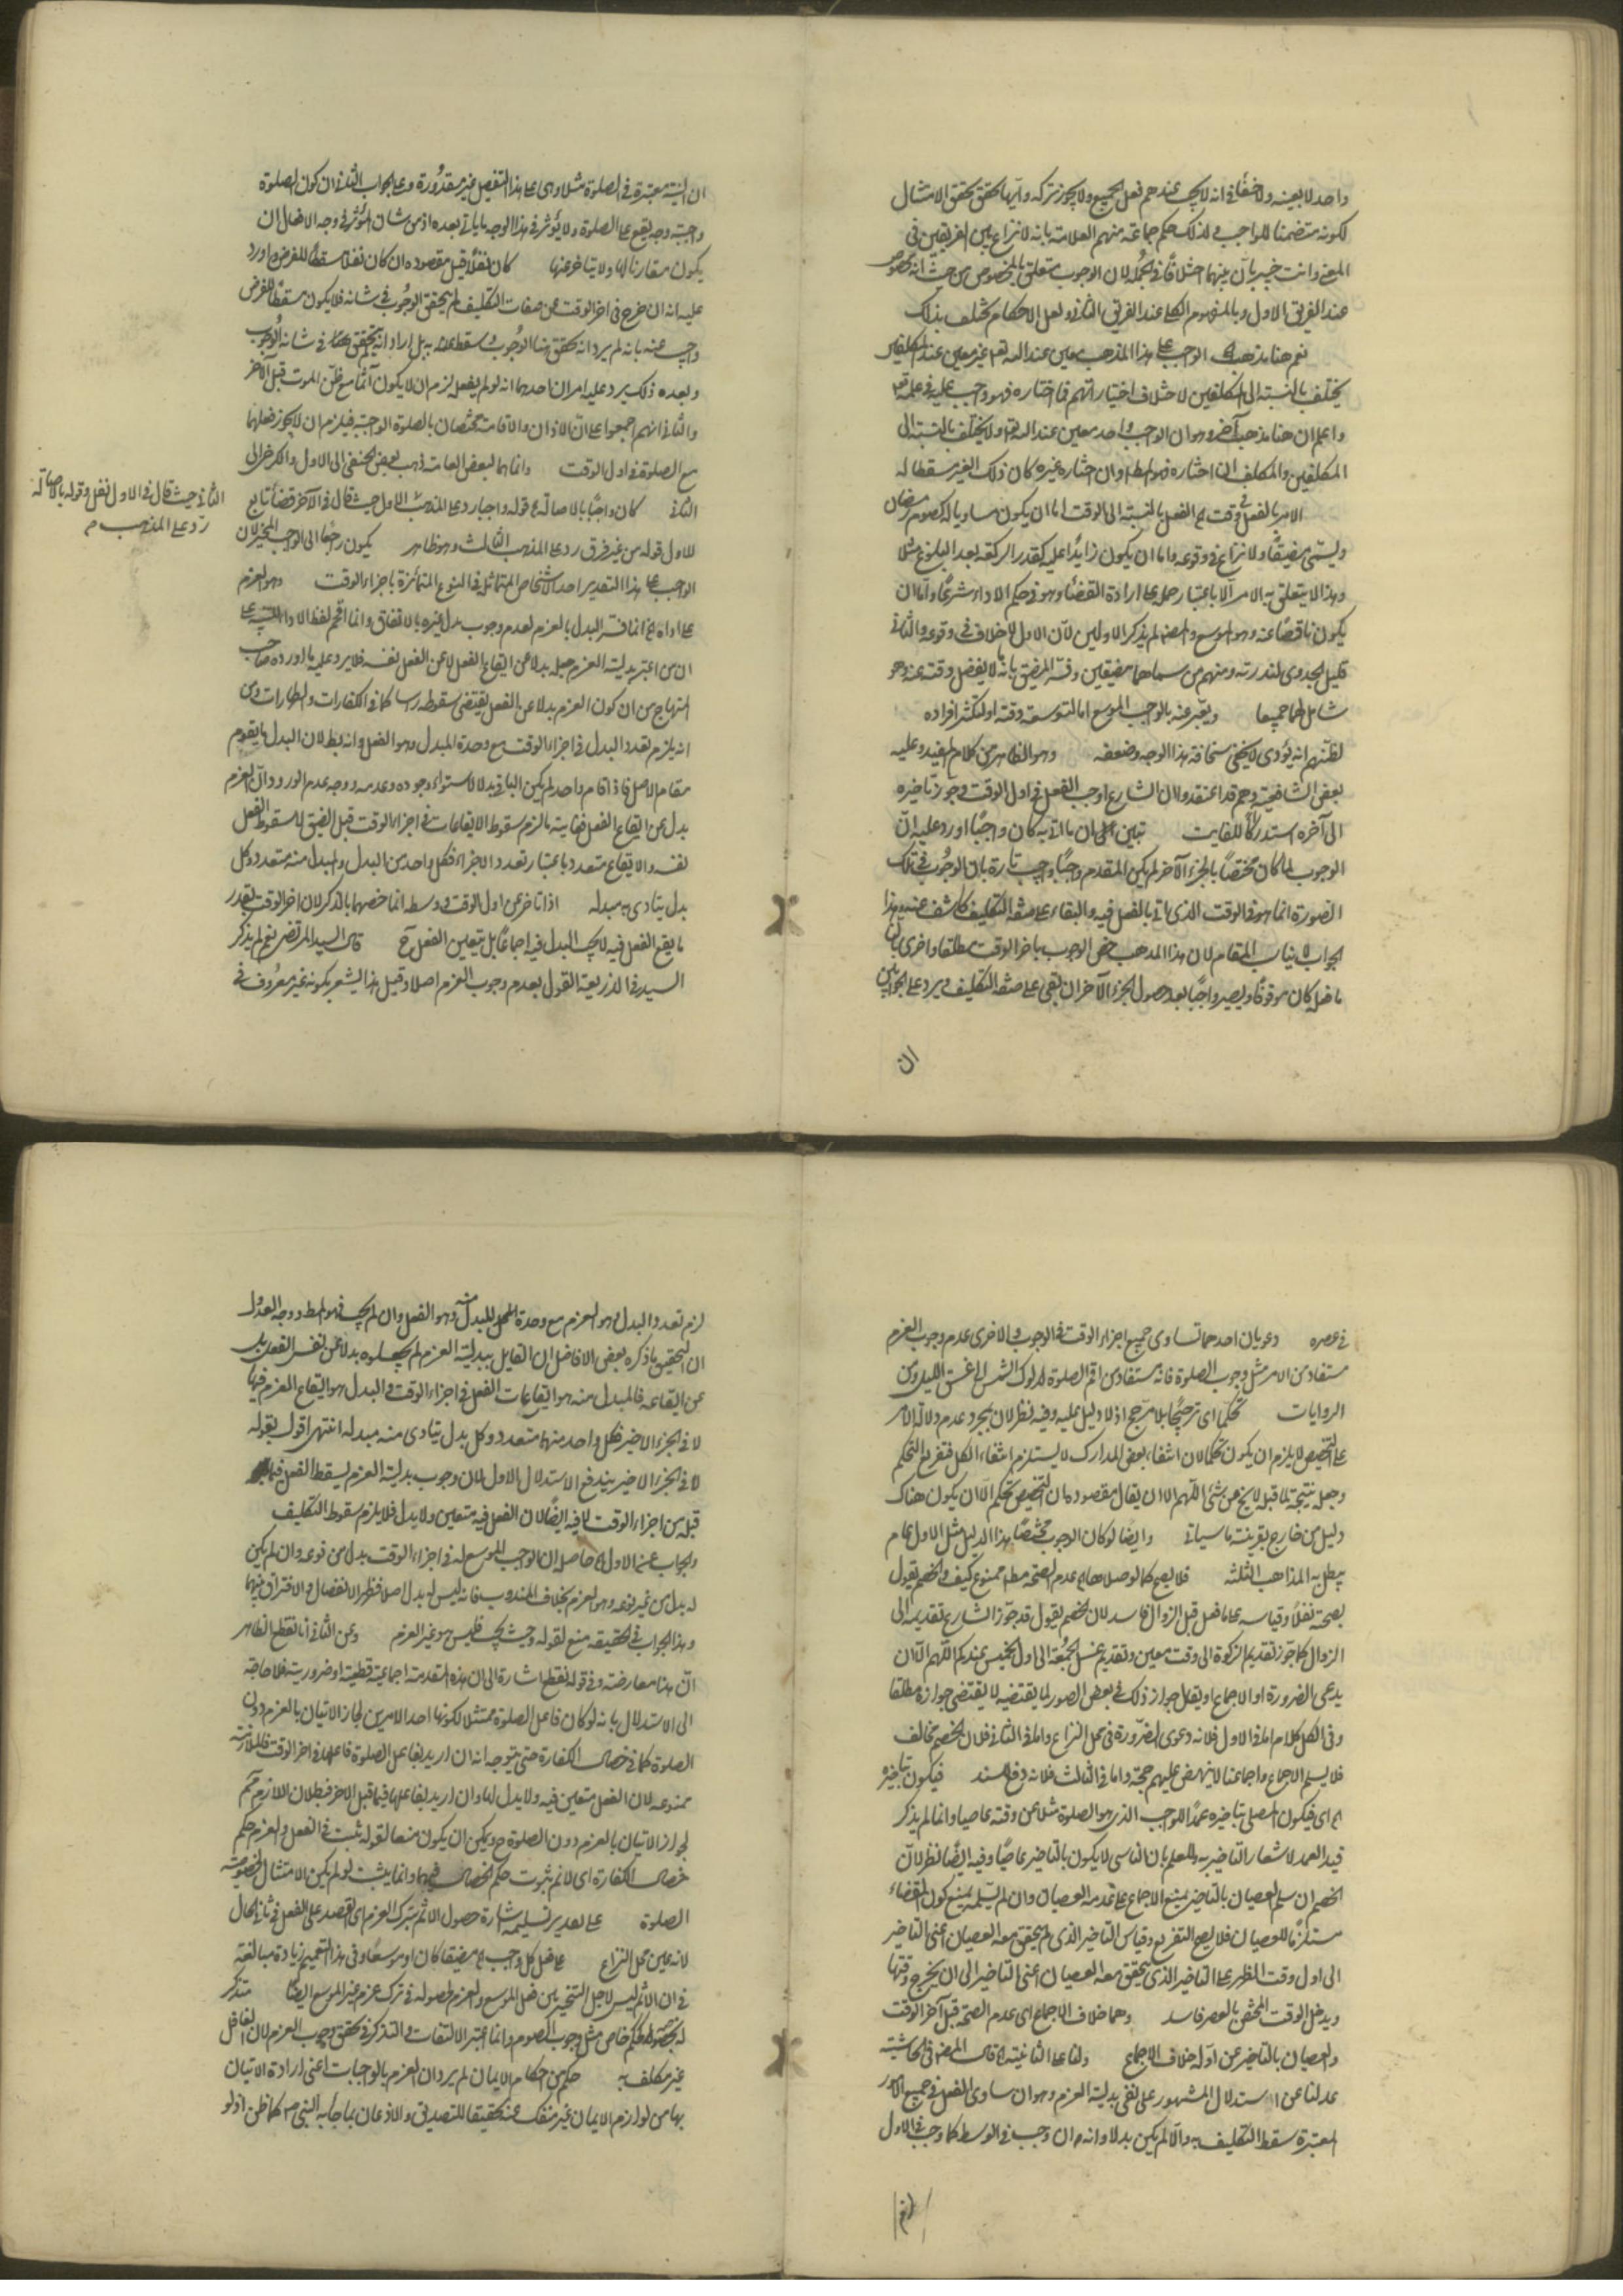 واحد لا بعينه ولا خفاء في انه لا يجب عندهم فعل الجميع ولا يجوز تركه وايها تحقق يحقق الامتثال
لكونه متضمنا للواجب ولذلك حكم جماعة منهم العلامة بانه لا نزاع بين الفريقين في
المعنى وانت خبير بان بينهما اختلافا في الجملة لان الوجوب متعلق بالمخصوص من حيث انه مخصوص
عند الفريق الاول وبالمفهوم الكلي عند الفريق الثاني ولعل الاحكام يختلف بذلك
نعم هنا مذهب الواجب على هذا المذهب معين عند الله تعم غير معين عند المكلفين
يختلف بالنسبة الى المكلفين لاختلاف اختياراتهم فما اختاره فهو واجب عليه في علمه تعم
واعلم ان هنا مذهب آخر وهو ان الواجب واحد معين عند الله تعم ولا يختلف بالنسبة الى
المكلفين والمكلف ان اختاره فهو المط وان اختار غيره كان ذلك الغير مسقطا له
الامر بالفعل في وقت الفعل بالنسبة الى الوقت اما ان يكون مساويا له كصوم رمضان
ويسمى مضيقا ولا نزاع في وقوعه واما ان يكون زايدا عليه كقدر الركعة بعد البلوغ مثلا
وهذا لا يتعلق به الامر الا باعتبار حمله على ارادة القضاء وهو في حكم الاداء شرعا واما ان
يكون ناقصا عنه وهو الموسع والمصنف لم يذكر الاولين لان الاول لا خلاف في وقوعه والثاني
قليل الجدوى لندرته ومنهم من سماهما مضيقين وفسر المضيق بانه لا يفضل وقته عنه وهو
شامل لهما جميعا ويعبر عنه بالواجب الموسع اما لتوسعة وقته او لتكثر افراده
لظنهم انه يؤدى لا يخفى سخافة هذا الوجه وضعفه وهو الظاهر من كلام المفيد وعليه
بعض الشافعية وهم قد اعتقدوا ان الشارع اوجب الفعل في اول الوقت وجوز تاخيره
الى آخره استدراكا للفايت تبين ان ما اتى به كان واجبا اورد عليه ان
الوجوب لما كان مختصا بالجزء الآخر لم يكن المقدم واجبا واجيب تارة بان الوجوب في تلك
الصورة انما هو في الوقت الذي اتى بالفعل فيه والبقاء على صفة التكليف كاشف عنه وهذا
الجواب لا يناسب المقام لان هذا المذهب خص الوجوب باخر الوقت مطلقا واخرى بان
ما فعله كان موقوفا ويصير واجبا بعد حصول الجزء الآخر ان بقي على صفة التكليف ويرد على الجوابين
ان
ان النية معتبرة في الصلوة مثلا وهي على هذا التفصيل غير مقدورة وعلى الجواب الثاني ان كون الصلوة
واجبة وجه يقع على الصلوة ولا يؤثر في هذا الوجه ما ياتي بعده اذ من شان المؤثر في وجه الافعال ان
يكون مقارنا لها ولا يتاخر عنها كان نفلا قيل مقصوده ان كان نفلا مسقطا للفرض واورد
عليه انه ان خرج في اخر الوقت عن صفات التكليف لم يتحقق الوجوب في شانه فلا يكون مسقطا للفرض
واجيب عنه بانه لم يرد انه تحقق هنا الوجوب وسقط عنه به بل اراد انه يتحقق في شانه الوجوب
وبعده ذلك يرد عليه امران احدهما انه لو لم يفعل لزم ان لا يكون آثما مع ظن الموت قبل الآخر
والثاني انهم اجمعوا على ان الاذان والاقامة مختصان بالصلوة الواجبة فيلزم ان لا يجوز فعلهما
مع الصلوة في اول الوقت وانهما لبعض العامة ذهب بعض الحنفي الى الاول والكرخي الى
الثاني كان واجبا بالاصالة قوله واجبا رد على المذهب الاول حيث قال في الآخر قضاء تابع
للاول قوله من غير فرق رد على المذهب الثالث وهو ظاهر يكون راجعا الى الواجب المخير لان
الواجب على هذا التقدير احد الاشخاص المتماثلة في النوع المتمايزة باجزاء الوقت وهو العزم
على اداء انما فسر البدل بالعزم لعدم وجوب بدل غيره بالاتفاق وانما اقحم لفظ الاداء للتنبيه على
ان من اعتبر بدلية العزم جعله بدلا عن ايقاع الفعل لا عن الفعل نفسه فلا يرد عليه ما اورده صاحب
المنهاج من ان كون العزم بدلا عن الفعل يقتضي سقوطه راسا كما في الكفارات والطهارات ومن
انه يلزم تعدد البدل في اجزاء الوقت مع وحدة المبدل وهو الفعل وانه بطلان البدل ما يقوم
مقام الاصل فاذا قام واحد لم يكن الباقي بدلا لاستواء وجوده وعدمه ووجه عدم الورود ان العزم
بدل عن ايقاع الفعل فغاية ما لزم سقوط الايقاعات في اجزاء الوقت قبل الضيق لا سقوط الفعل
نفسه والايقاع متعدد باعتبار تعدد الاجزاء فكل واحد من البدل والمبدل منه متعدد وكل
بدل يتادى به مبدله اذا تاخر عن اول الوقت ووسطه انما خصهما بالذكر لان اخر الوقت بقدر
ما يقع الفعل فيه لا يجب البدل فيه اجماعا بل يتعين الفعل ح قال السيد المرتضى نعم لم يذكر
السيد في الذريعة القول بعدم وجوب العزم اصلا وقيل هذا يشعر بكونه غير معروف في
الثاني حيث قال في الاول نفل وقوله بالاصالة
رد على المذهب م
في عصره دعويان احدهما تساوي جميع اجزاء الوقت في الوجوب والاخرى عدم وجوب العزم
مستفاد من الامر مثل وجوب الصلوة فانه مستفاد من اقم الصلوة لدلوك الشمس الى غسق الليل ومن
الروايات تحكما اي ترجيحا بلا مرجح اذ لا دليل عليه وفيه نظر لان مجرد عدم دلالة الامر
على التخصيص لا يلزم ان يكون تحكما لان انتفاء بعض المدارك لا يستلزم انتفاء الكل فتفريع التحكم
وجعله نتيجة لما قبله لا يخ عن شئ اللهم الا ان يقال مقصوده ان التخصيص تحكم الا ان يكون هناك
دليل من خارج بقرينة ما سياتي وايضا لو كان الوجوب مختصا هذا الدليل مثل الاول عام
يبطل به المذاهب الثلثة فلا يصح كما لو صلاها عدم الصحة مطلقا ممنوع كيف والخصم يقول
بصحته نفلا وقياسه على ما فعل قبل الزوال فاسد لان الخصم يقول قد جوز الشارع تقديمه الى
الزوال كما جوز تقديم الزكوة الى وقت معين وتقديم غسل الجمعة الى اول الخميس عندكم اللهم الا ان
يدعى الضرورة او الاجماع او يقول جواز ذلك في بعض الصور لما يقتضيه لا يقتضي جوازه مطلقا
وفي الكل كلام اما في الاول فلانه دعوى الضرورة في محل النزاع واما في الثاني فلان الخصم مخالف
فلا يسلم الاجماع واجماعنا لا ينهض عليهم حجة واما في الثالث فلانه دفع للسند فيكون بتاخيره
اي فيكون المصلي بتاخيره عمدا للواجب الذي هو الصلوة مثلا عن وقته عاصيا وانما لم يذكر
قيد العمد لاشعار التاخير به وللعلم بان الناسي لا يكون بالتاخير عاصيا وفيه ايضا نظر لان
الخصم ان سلم العصيان بالتاخير يمنع الاجماع على عدم العصيان وان لم يسلمه يمنع كون القضاء
مستلزما للعصيان فلا يصح التفريع وقياس التاخير الذي لم يتحقق معه العصيان اعني التاخير
الى اول وقت الظهر على التاخير الذي يتحقق معه العصيان اعني التاخير الى ان يخرج وقتها
ويدخل الوقت المختص بالعصر فاسد وهما خلاف الاجماع اي عدم الصحة قبل آخر الوقت
والعصيان بالتاخير عن اوله خلاف الاجماع ولنا على الثانية قال المصنف في الحاشية
عدلنا عن الاستدلال المشهور على نفي بدلية العزم وهو ان ساوى الفعل في جميع الامور
المعتبرة سقط التكليف به والا لم يكن بدلا وانه ان وجب في الوسط كما وجب في الاول
لزم
لزم تعدد البدل وهو العزم مع وحدة المبدل منه وهو الفعل وان لم يجب فهو المط ووجه العدول
ان التحقيق ما ذكره بعض الافاضل ان القايل ببدلية العزم لم يجعلوه بدلا عن نفس الفعل بل
عن ايقاعه فالمبدل منه هو ايقاعات الفعل في اجزاء الوقت والبدل هو ايقاع العزم فيها
لا في الجزء الاخير فكل واحد منهما متعدد وكل بدل يتادى منه مبدله انتهى اقول بقوله
لا في الجزء الاخير يندفع الاستدلال بالاول لان وجوب بدلية العزم يسقط الفعل فيما
قبله من اجزاء الوقت لا فيه ايضا لان الفعل فيه متعين ولا بدل فلا يلزم سقوط التكليف
والجواب عن الاول حاصله ان الواجب الموسع له في اجزاء الوقت بدل من نوعه وان لم يكن
له بدل من غير نوعه وهو العزم بخلاف المندوب فانه ليس له بدل اصلا فظهر الانفصال والافتراق بينهما
وهذا الجواب في الحقيقة منع لقوله وحيث يجب فليس هو غير العزم وعن الثاني انا نقطع الظاهر
ان هذا معارضة وفي قوله نقطع اشارة الى ان هذه المقدمة اجماعية قطعية او ضرورية فلا حاجة
الى الاستدلال بانه لو كان فاعل الصلوة ممتثلا لكونها احد الامرين لجاز الاتيان بالعزم دون
الصلوة كما في خصال الكفارة حتى يتوجه انه ان اريد بفاعل الصلوة فاعلها في اخر الوقت فالملازمة
ممنوعة لان الفعل متعين فيه ولا بدل لها وان اريد بفاعلها فيما قبل الاخر فبطلان اللازم مم
لجواز الاتيان بالعزم دون الصلوة ح ويمكن ان يكون منعا لقوله ثبت في الفعل والعزم حكم
خصال الكفارة اي لا نم ثبوت حكم الخصال فيهما وانما يثبت لو لم يكن الامتثال لخصوصية
الصلوة على تقدير تسليمه اشارة حصول الاثم بترك العزم اي القصد على الفعل في ثاني الحال
لانه عين محل النزاع على فعل كل واجب مضيقا كان او موسعا وفي هذا التعميم زيادة مبالغة
في ان الاثم ليس لاجل التخيير بين فعل الموسع والعزم لحصوله في ترك عزم غير الموسع ايضا متذكر
له بخصوصه كحكم خاص مثل وجوب الصوم وانما اعتبر الالتفات والتذكر في تحقق وجوب العزم لان الغافل
غير مكلف به حكم من احكام الايمان لم يرد ان العزم بالواجبات اعني ارادة الاتيان
بها من لوازم الايمان غير منفك عنه تحقيقا للتصديق والاذعان بما جاء به النبي ص كما ظن اذ لو